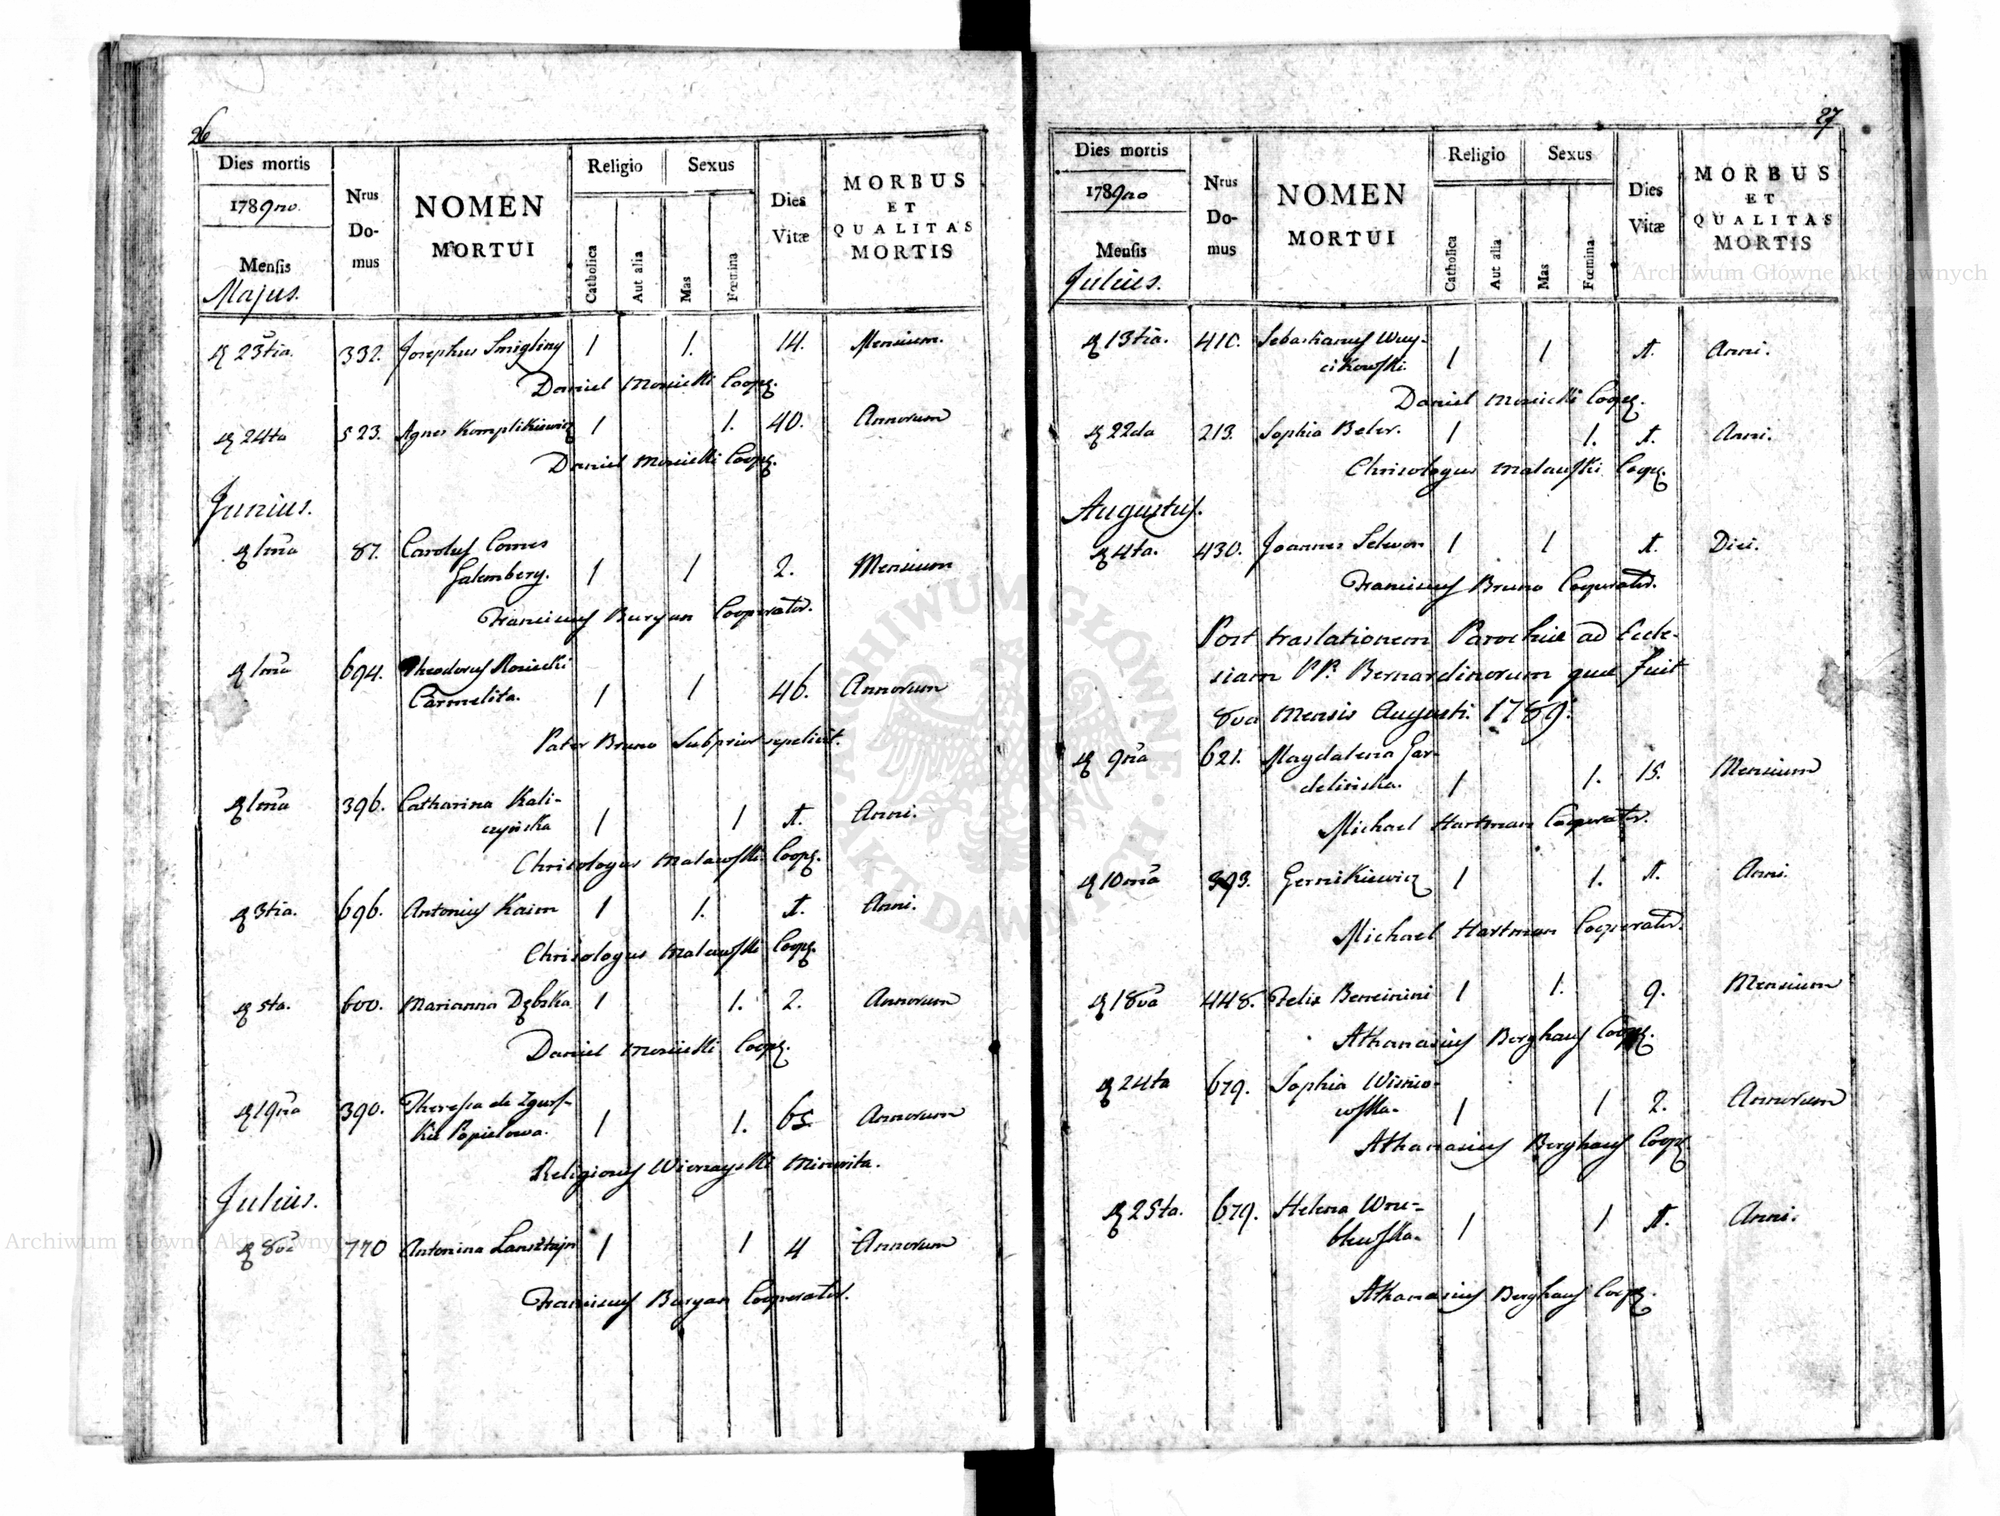 26
Dies mortis
1789no.
Mensis
Majus.
Nrus
Do-
mus
NOMEN
MORTUI
Religio
Sexus
Catholica
Aut alia
Mas
Fœmina
Dies
Vitæ
MORBUS
ET
QUALITAS
MORTIS
23tia. 332. Josephus Smigliny 1 1. 14. Mensium.
Daniel Coop.
24ta 523. Agnes Komplikiewicz 1 1. 40. Annorum
Daniel Coop.
Junius.
1ma 87. Carolus Comes
Galemberg. 1 1 2. Mensium
Franciscus Buryan Cooperator.
1ma 694. Theodorus
Carmelita. 1 1 46. Annorum
Pater Bruno Subprior sepelivit.
1ma 396. Catharina Kali-
czyńska 1 1 1. Anni.
Chrisologus Malawski Coop.
3tia. 696. Antonius Kaim 1 1. 1. Anni.
Chrisologus Malawski Coop.
5ta. 600. Marianna Dębska 1 1. 2. Annorum
Daniel Coop.
19na 390. Theressa de Zgurs-
kie Popielowa. 1 1. 65 Annorum
Religiosus Minorita.
Julius.
8va 770 Antonina Lansztajn 1 1 4 Annorum
Franciscus Buryan Cooperator.
27
Dies mortis
1789no
Mensis
Julius.
Nrus
Do-
mus
NOMEN
MORTUI
Religio
Sexus
Catholica
Aut alia
Mas
Fœmina
Dies
Vitæ
MORBUS
ET
QUALITAS
MORTIS
13tia. 410. Sebastianus Woy-
cikowski. 1 1 1. Anni.
Daniel Coop.
22da 213. Sophia Beler. 1 1. 1. Anni.
Chrisologus Malawski Coop.
Augustus.
4ta. 430. Joannes 1 1 1. Diei.
Franciscus Bruno Cooperator.
Post traslationem Parochiæ ad Eccle-
siam PP. Bernardinorum quæ fuit
8va Mensis Augusti. 1789.
9na 621. Magdalena Gar-
delińska. 1 1. 15. Mensium
Michael Hartman Cooperator.
10ma 393. Gernikiewicz 1 1. 1. Anni.
Michael Hartman Cooperator.
18va 448. Felix 1 1. 9. Mensium
Athanasius Berghaus Coop.
24ta 679. Sophia Wisnio-
wska. 1 1 2. Annorum
Athanasius Berghaus Coop.
25ta. 679. Helena Wru-
blewska. 1 1 1. Anni.
Athanasius Berghaus Coop.
Archiwum Główne Akt Dawnych
Archiwum Główne Akt Dawnych
ARCHIWUM GŁÓWNE AKT DAWNYCH